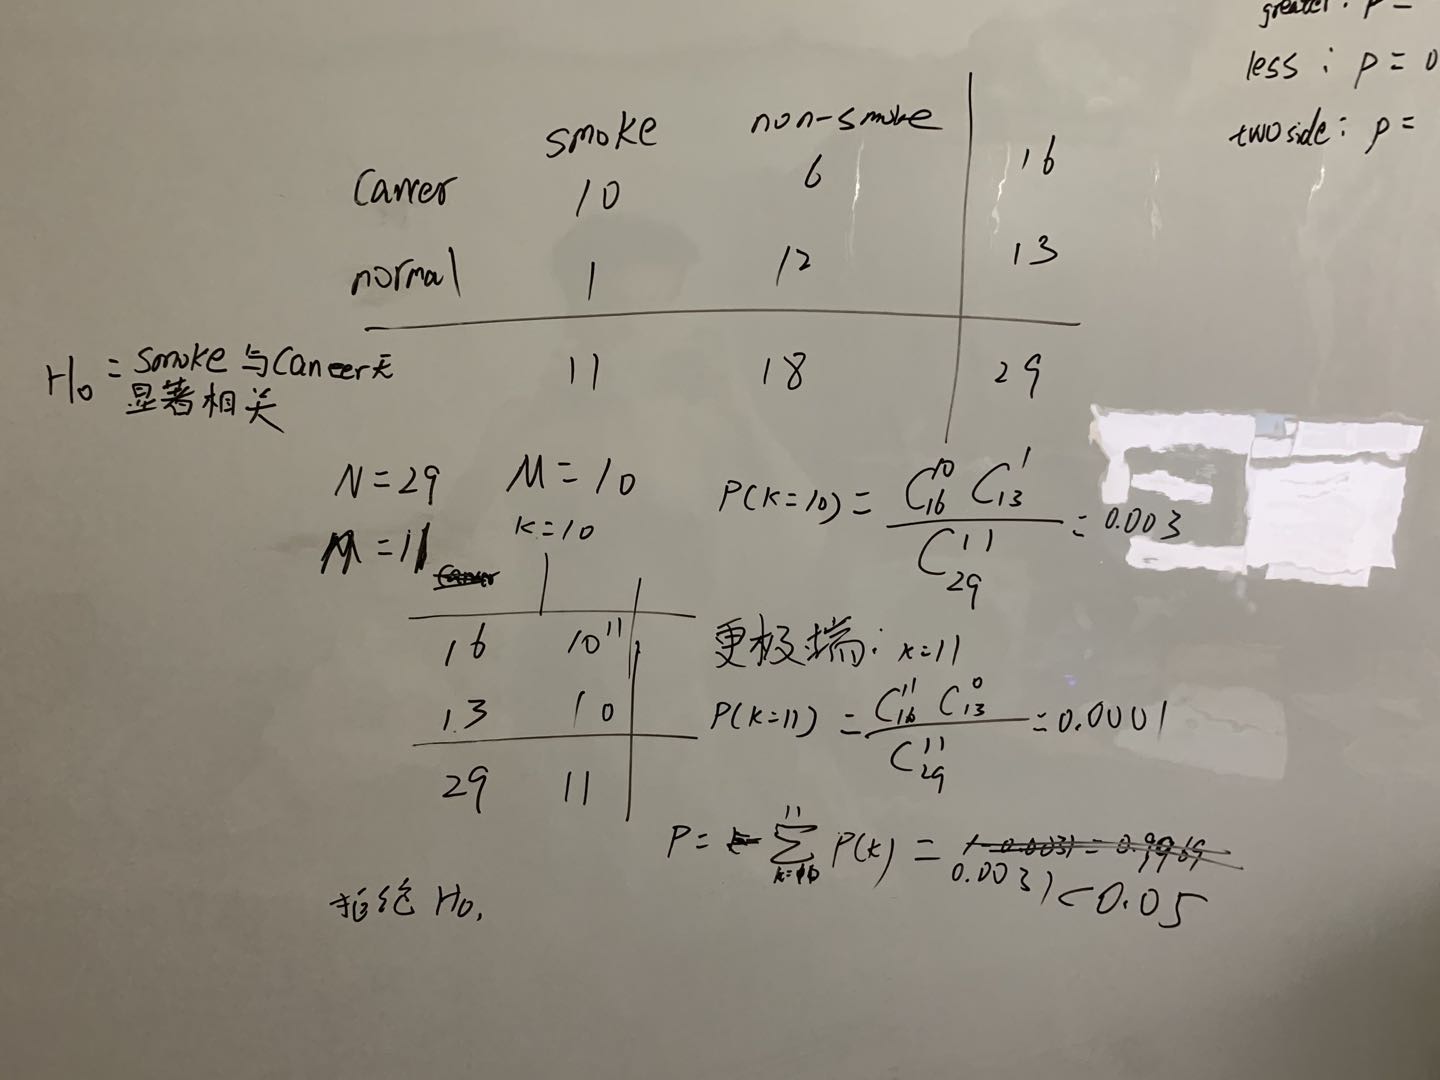 greater: P =
less : P = 0
two side: P =
smoke non-smoke
Cancer 10 6 16
normal 1 12 13
11 18 29
H₀ = Smoke 与 Cancer 无
显著相关
N = 29 M = 10
M = 11 K = 10
16 10 11
13 1 0
29 11
P(K=10) = C₁₆¹⁰ C₁₃¹ / C₂₉¹¹ = 0.003
更极端: K=11
P(K=11) = C₁₆¹¹ C₁₃⁰ / C₂₉¹¹ = 0.0001
P = ∑ₖ₌₁₀¹¹ P(K) = 1-0.0031 = 0.9969
0.0031 < 0.05
拒绝 H₀,